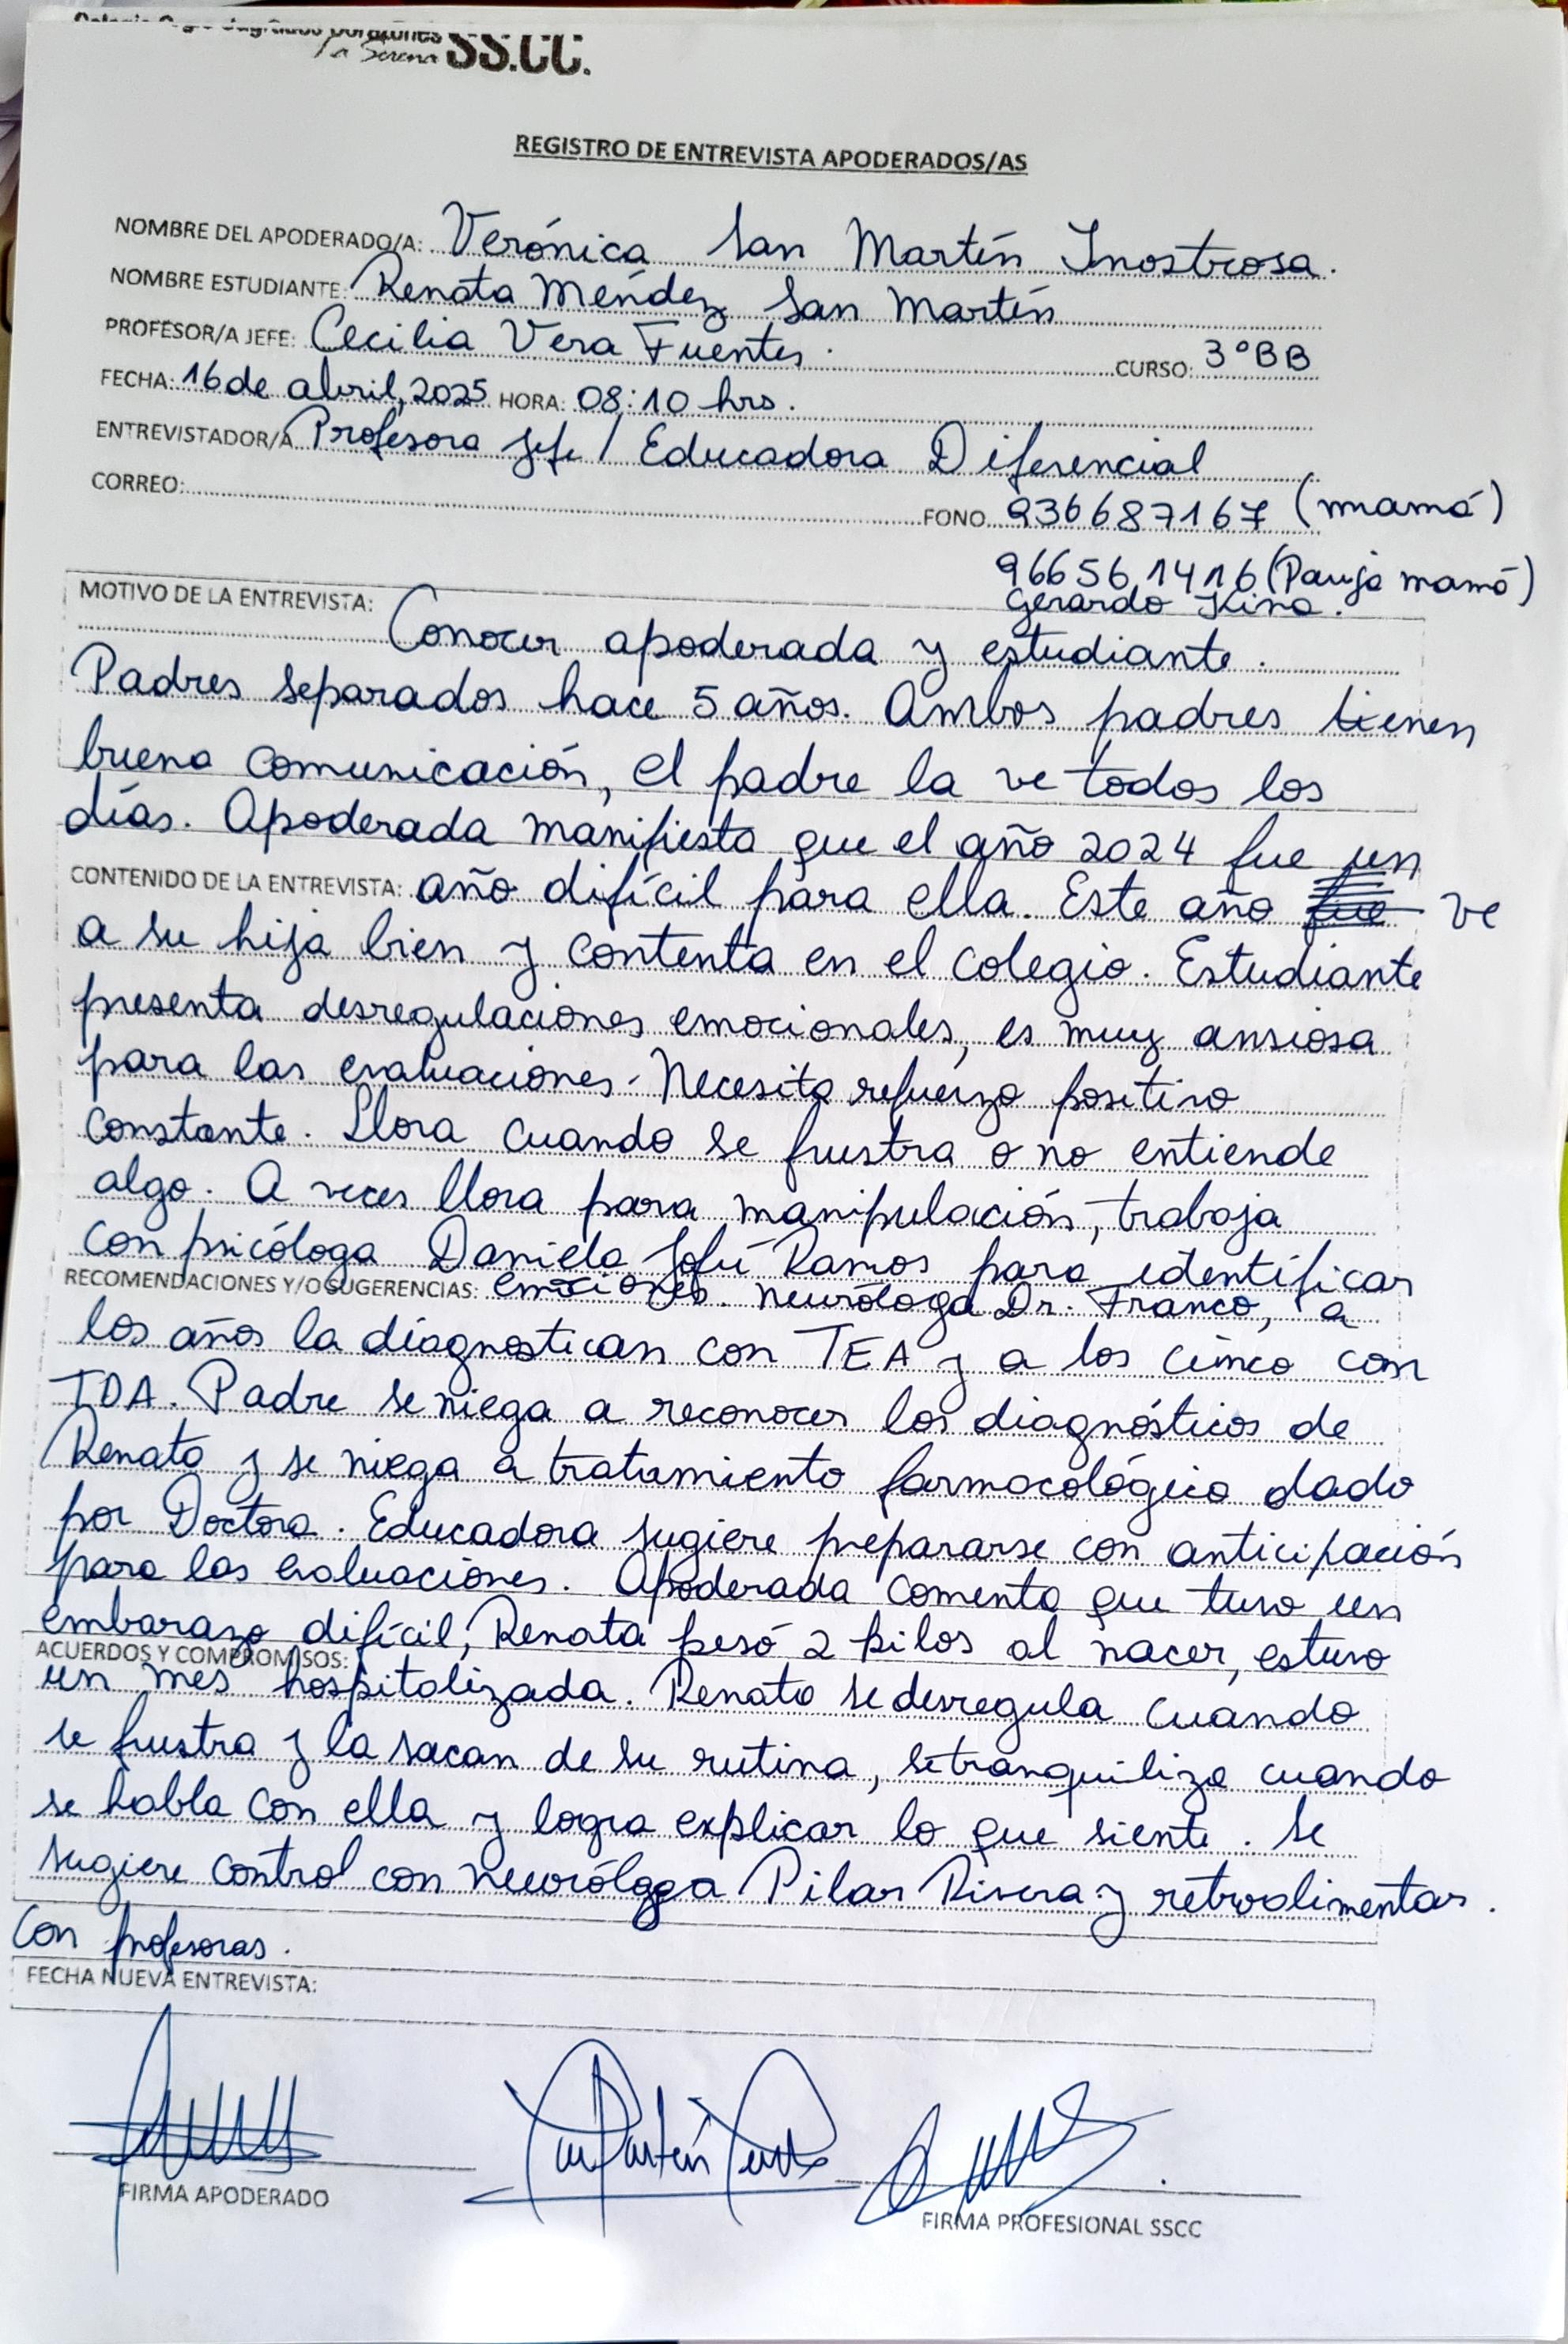 Sagrados Corazones
La Serena SS.CC.
REGISTRO DE ENTREVISTA APODERADOS/AS
NOMBRE DEL APODERADO/A: Verónica San Martín Inostrosa.
NOMBRE ESTUDIANTE: Renata Méndez San Martín
PROFESOR/A JEFE: Cecilia Vera Fuentes. CURSO: 3°BB
FECHA: 16 de abril, 2025 HORA: 08:10 hrs.
ENTREVISTADOR/A Profesora Jefe / Educadora Diferencial
CORREO: FONO 936687167 (mamá)
966561416 (Pareja mamá)
Gerardo
MOTIVO DE LA ENTREVISTA:
Conocer apoderada y estudiante.
Padres separados hace 5 años. Ambos padres tienen
buena comunicación, el padre la ve todos los
días. Apoderada manifiesta que el año 2024 fue un
CONTENIDO DE LA ENTREVISTA: año difícil para ella. Este año fue ve
a su hija bien y contenta en el colegio. Estudiante
presenta desregulaciones emocionales, es muy ansiosa
para las evaluaciones. Necesita refuerzo positivo
constante. Llora cuando se frustra o no entiende
algo. A veces llora para manipulación, trabaja
con psicóloga Daniela Ramos para identificar
RECOMENDACIONES Y/O SUGERENCIAS: emociones. Neuróloga Dr. Franco, a
los años la diagnostican con TEA y a los cinco con
TDA. Padre se niega a reconocer los diagnósticos de
Renata y se niega a tratamiento farmacológico dado
por Doctora. Educadora sugiere prepararse con anticipación
para las evaluaciones. Apoderada comenta que tuvo un
embarazo difícil, Renata pesó 2 kilos al nacer, estuvo
ACUERDOS Y COMPROMISOS:
un mes hospitalizada. Renata se desregula cuando
se frustra y la sacan de su rutina, se tranquiliza cuando
se habla con ella y logra explicar lo que siente. Se
sugiere control con neuróloga Pilar Rivera y retroalimentar.
con profesoras.
FECHA NUEVA ENTREVISTA:
FIRMA APODERADO
FIRMA PROFESIONAL SSCC